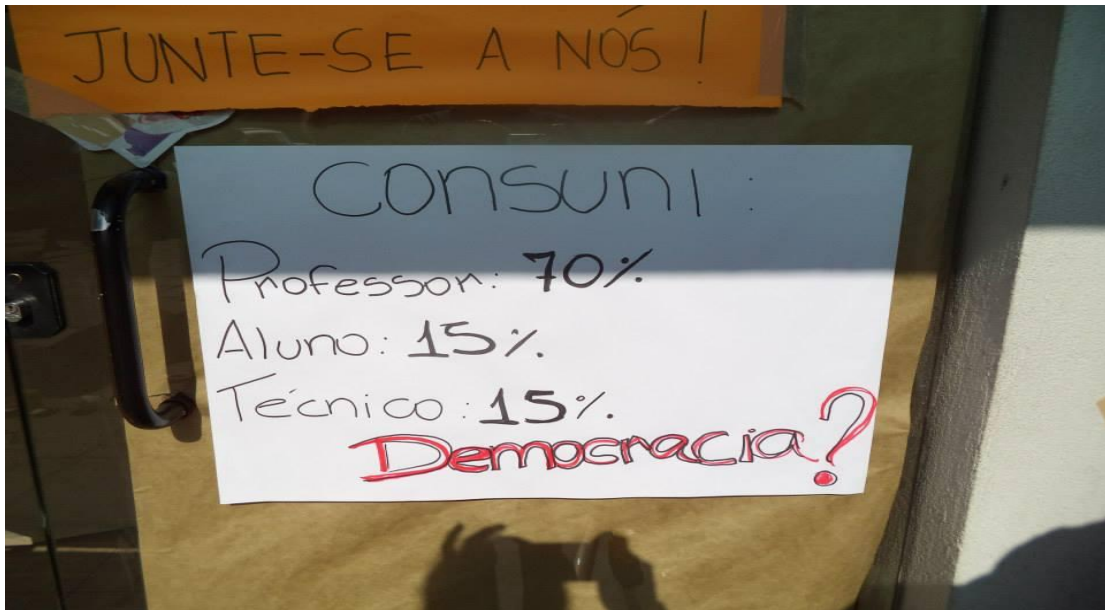 JUNTE-SE A NÓS!
CONSUNI:
Professor: 70%
Aluno: 15%
Técnico: 15%
Democracia?